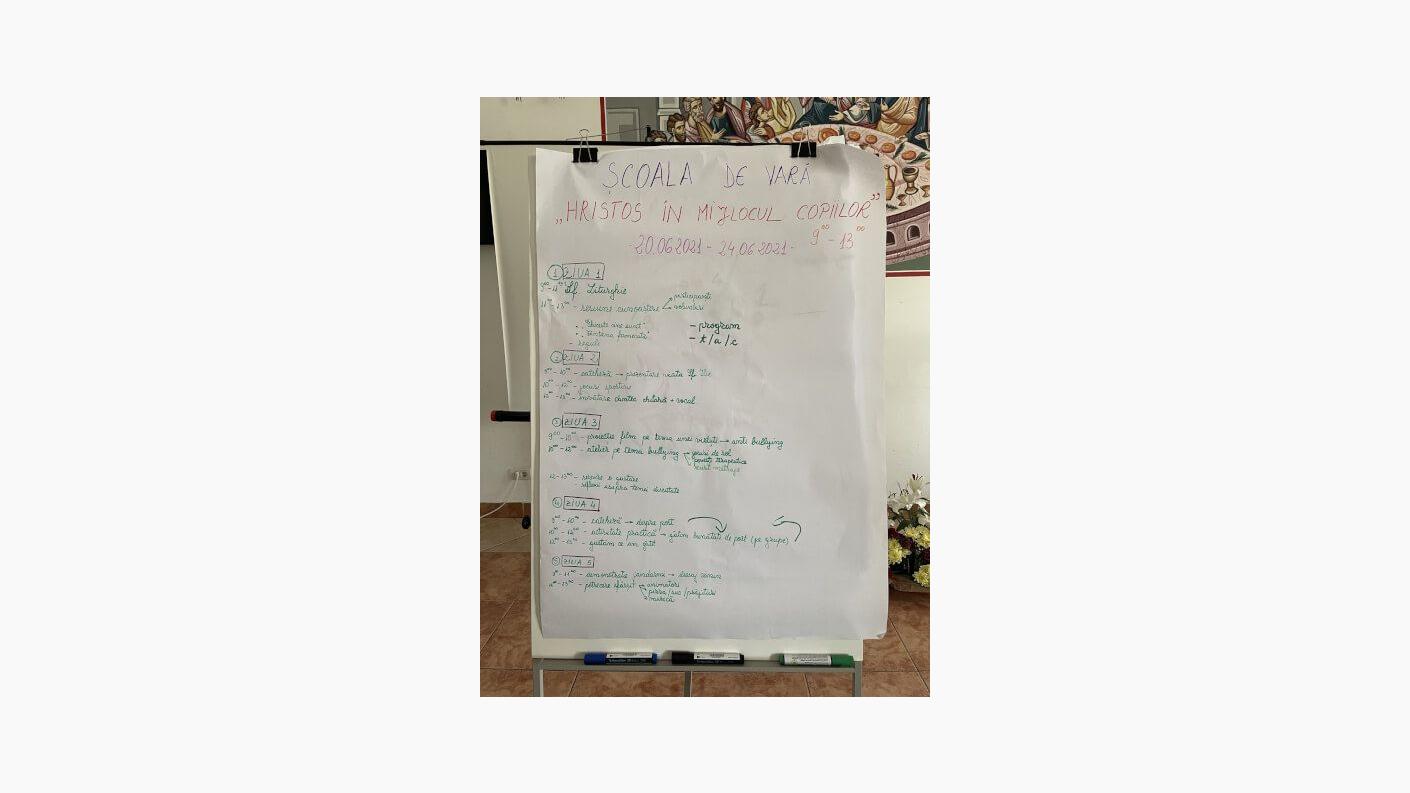 ȘCOALA DE VARĂ
„HRISTOS ÎN MIJLOCUL COPIILOR”
20.06.2021 - 24.06.2021 - 9⁰⁰ - 13⁰⁰
1 ZIUA 1
Sf. Liturghie
13⁰⁰ - sesiune cunoaștere participanți
voluntari
"Ghicește cine sunt"
- program
- reguli
- t/a/c
2 ZIUA 2
9⁰⁰ - 10⁰⁰ - cateheză → prezentare viața Sf. Ilie
10⁰⁰ - 12⁰⁰ - jocuri sportive
12⁰⁰ - 13⁰⁰ - învățare cântec chitară + vocal
3 ZIUA 3
9⁰⁰ - 10⁰⁰ - proiecție film pe tema unei virtuți → anti bullying
10⁰⁰ - 12⁰⁰ - atelier pe tema bullying → jocuri de rol
povești terapeutice
12 - 13⁰⁰ - servire o gustare
- reflexii asupra temei discutate
4 ZIUA 4
9⁰⁰ - 10⁰⁰ - cateheză → despre post
10⁰⁰ - 12⁰⁰ - activitate practică → gătim bunătăți de post (pe grupe)
12⁰⁰ - 13⁰⁰ - gustăm ce am gătit
5 ZIUA 5
9⁰⁰ - 11⁰⁰ - demonstrație jandarmi → dresaj canin
11⁰⁰ - 13⁰⁰ - petrecere sfârșit → animatori
pizza/suc/prăjituri
muzică